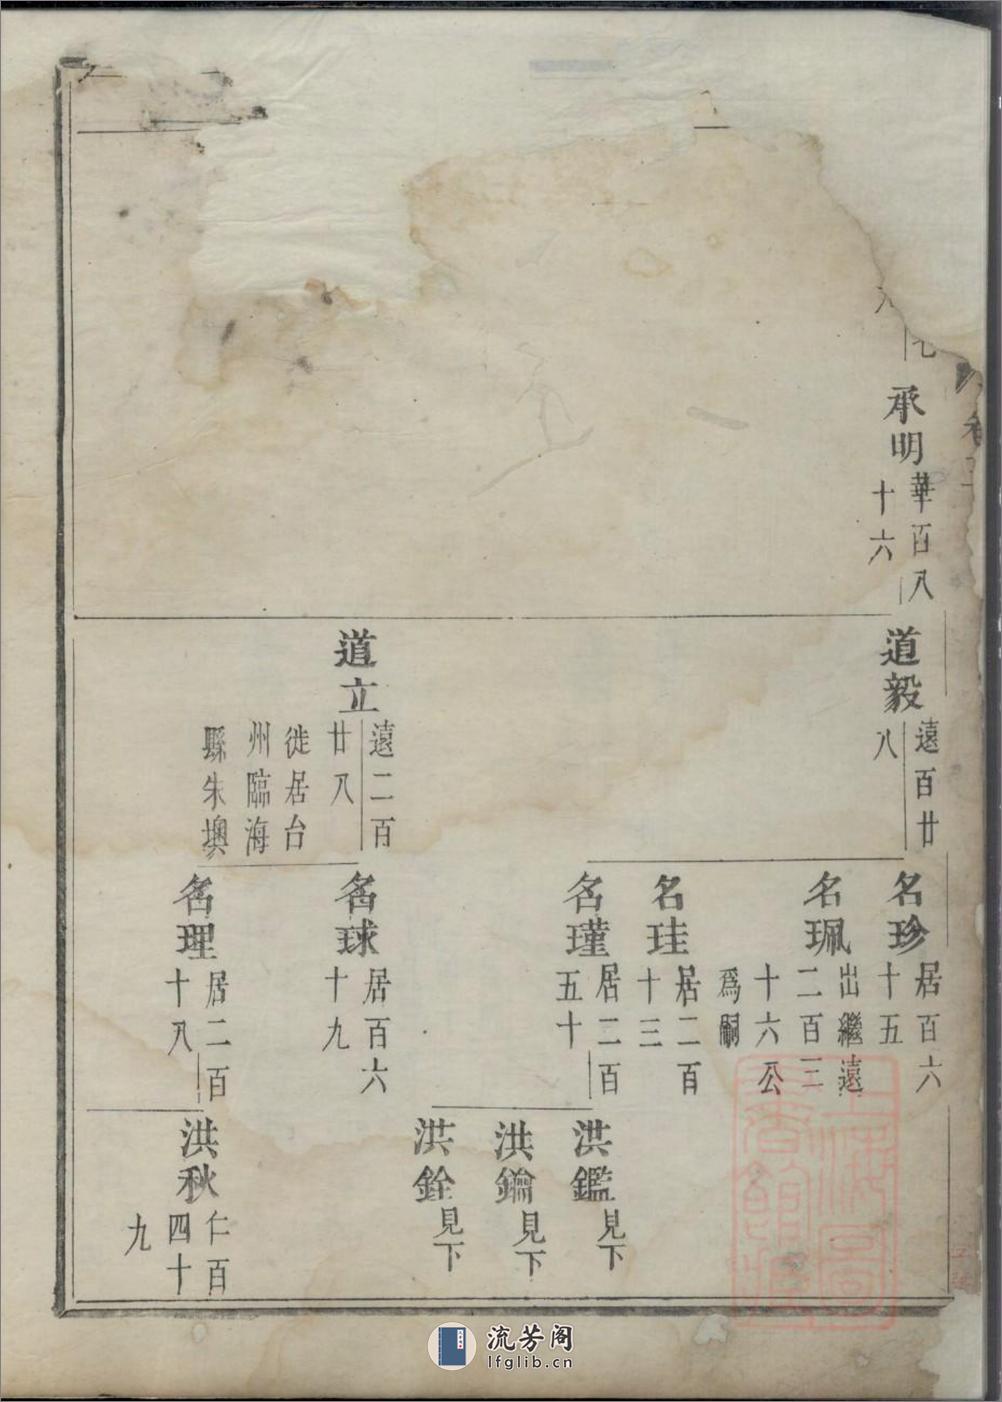 承明
華百八
十六
道毅
遠百廿
八
道立
遠二百
廿八
徙居台
州臨海
縣朱墺
名珍
居百六
十五
名珮
出繼遠
二百三
十六公
爲嗣
名珪
居二百
十三
名瑾
居二百
五十
名球
居百六
十九
名理
居二百
十八
洪鑑
見下
洪鑰
見下
洪銓
見下
洪秋
仁百
四十
九
流芳阁
lfglib.cn